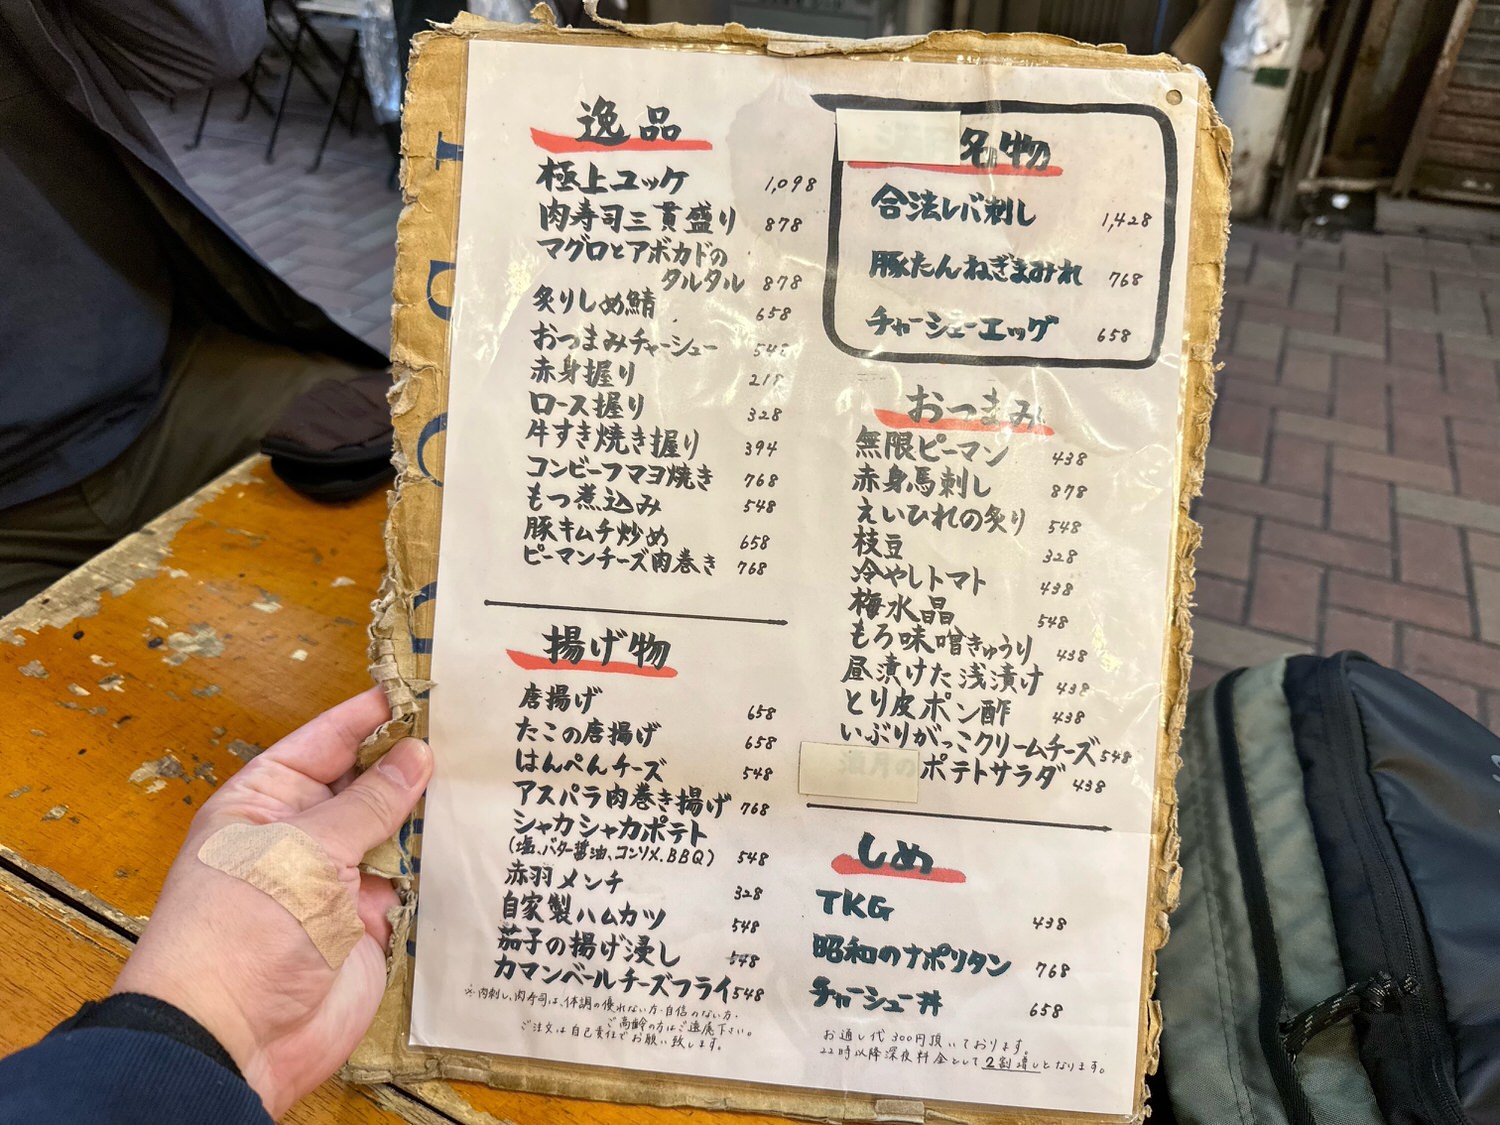 逸品
極上ユッケ 1,098
肉寿司三貫盛り 878
マグロとアボカドの
タルタル 878
炙りしめ鯖 658
おつまみチャーシュー 548
赤身握り 218
ロース握り 328
牛すき焼き握り 394
コンビーフマヨ焼き 768
もつ煮込み 548
豚キムチ炒め 658
ピーマンチーズ肉巻き 768
揚げ物
唐揚げ 658
たこの唐揚げ 658
はんぺんチーズ 548
アスパラ肉巻き揚げ 768
シャカシャカポテト
(塩、バター醤油、コンソメ、BBQ) 548
赤羽メンチ 328
自家製ハムカツ 548
茄子の揚げ浸し 548
カマンベールチーズフライ 548
※肉刺し、肉寿司は、体調の優れない方・自信のない方・
ご高齢の方はご遠慮下さい。
ご注文は自己責任でお願い致します。
名物
合法レバ刺し 1,428
豚たんねぎまみれ 768
チャーシューエッグ 658
おつまみ
無限ピーマン 438
赤身馬刺し 878
えいひれの炙り 548
枝豆 328
冷やしトマト 438
梅水晶 548
もろ味噌きゅうり 438
昼漬けた浅漬け 438
とり皮ポン酢 438
いぶりがっこクリームチーズ 548
ポテトサラダ 438
しめ
TKG 438
昭和のナポリタン 768
チャーシュー丼 658
お通し代300円頂いております。
22時以降深夜料金として2割増しとなります。